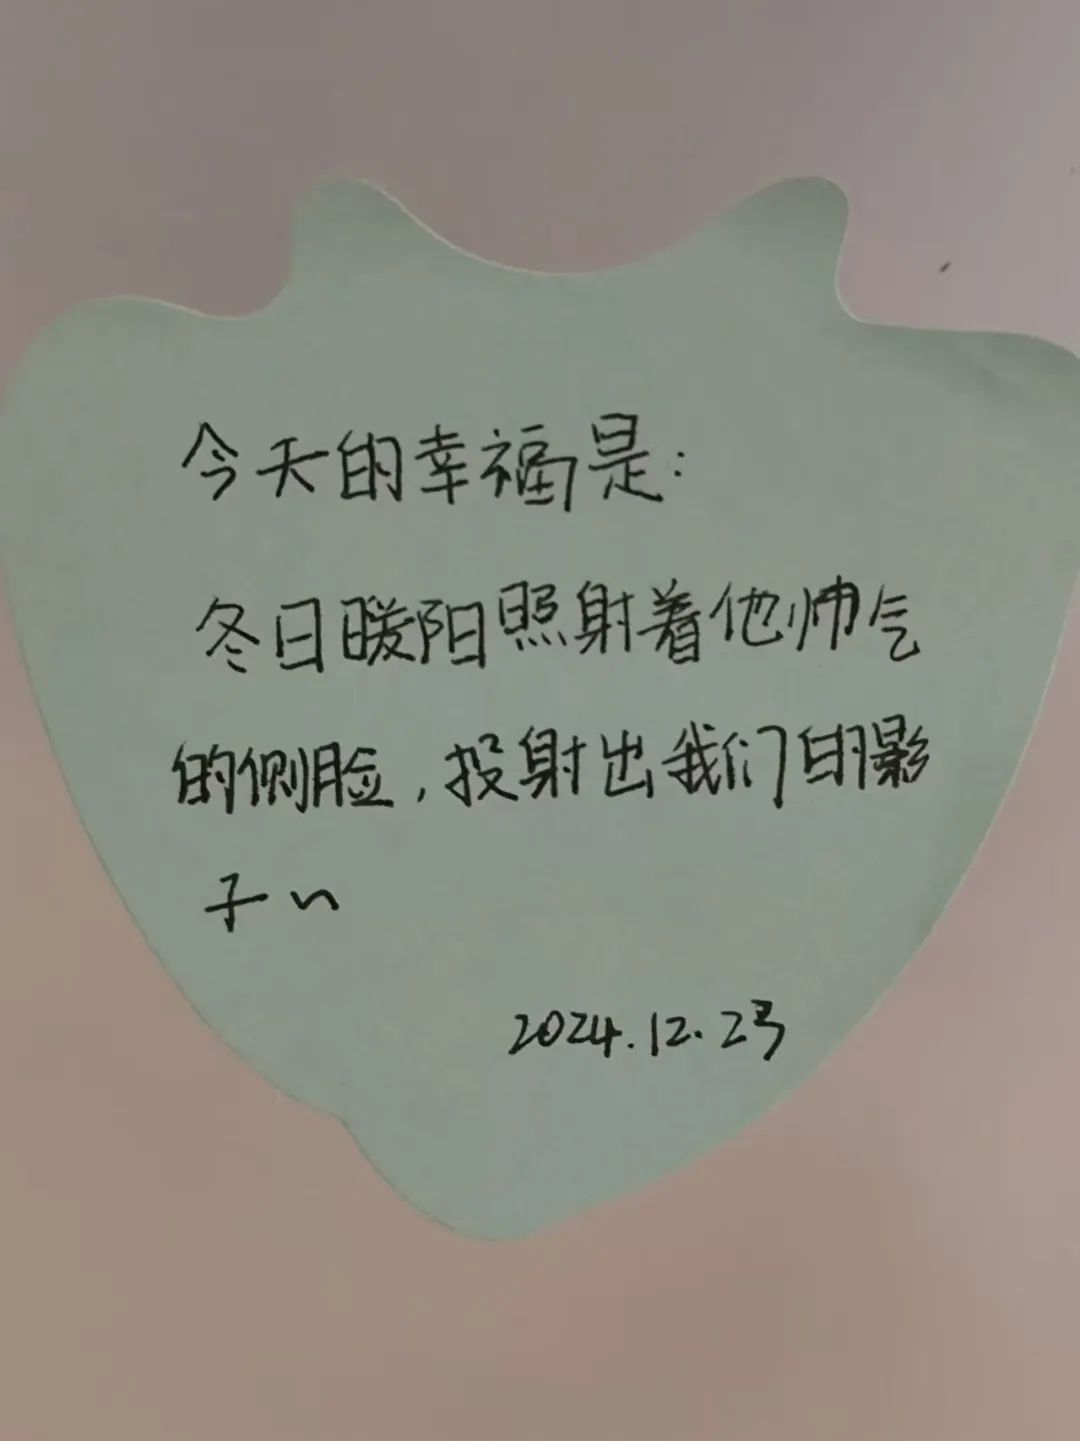 今天的幸福是:
冬日暖阳照射着他帅气
的侧脸,投射出我们的影
子~
2024.12.2号